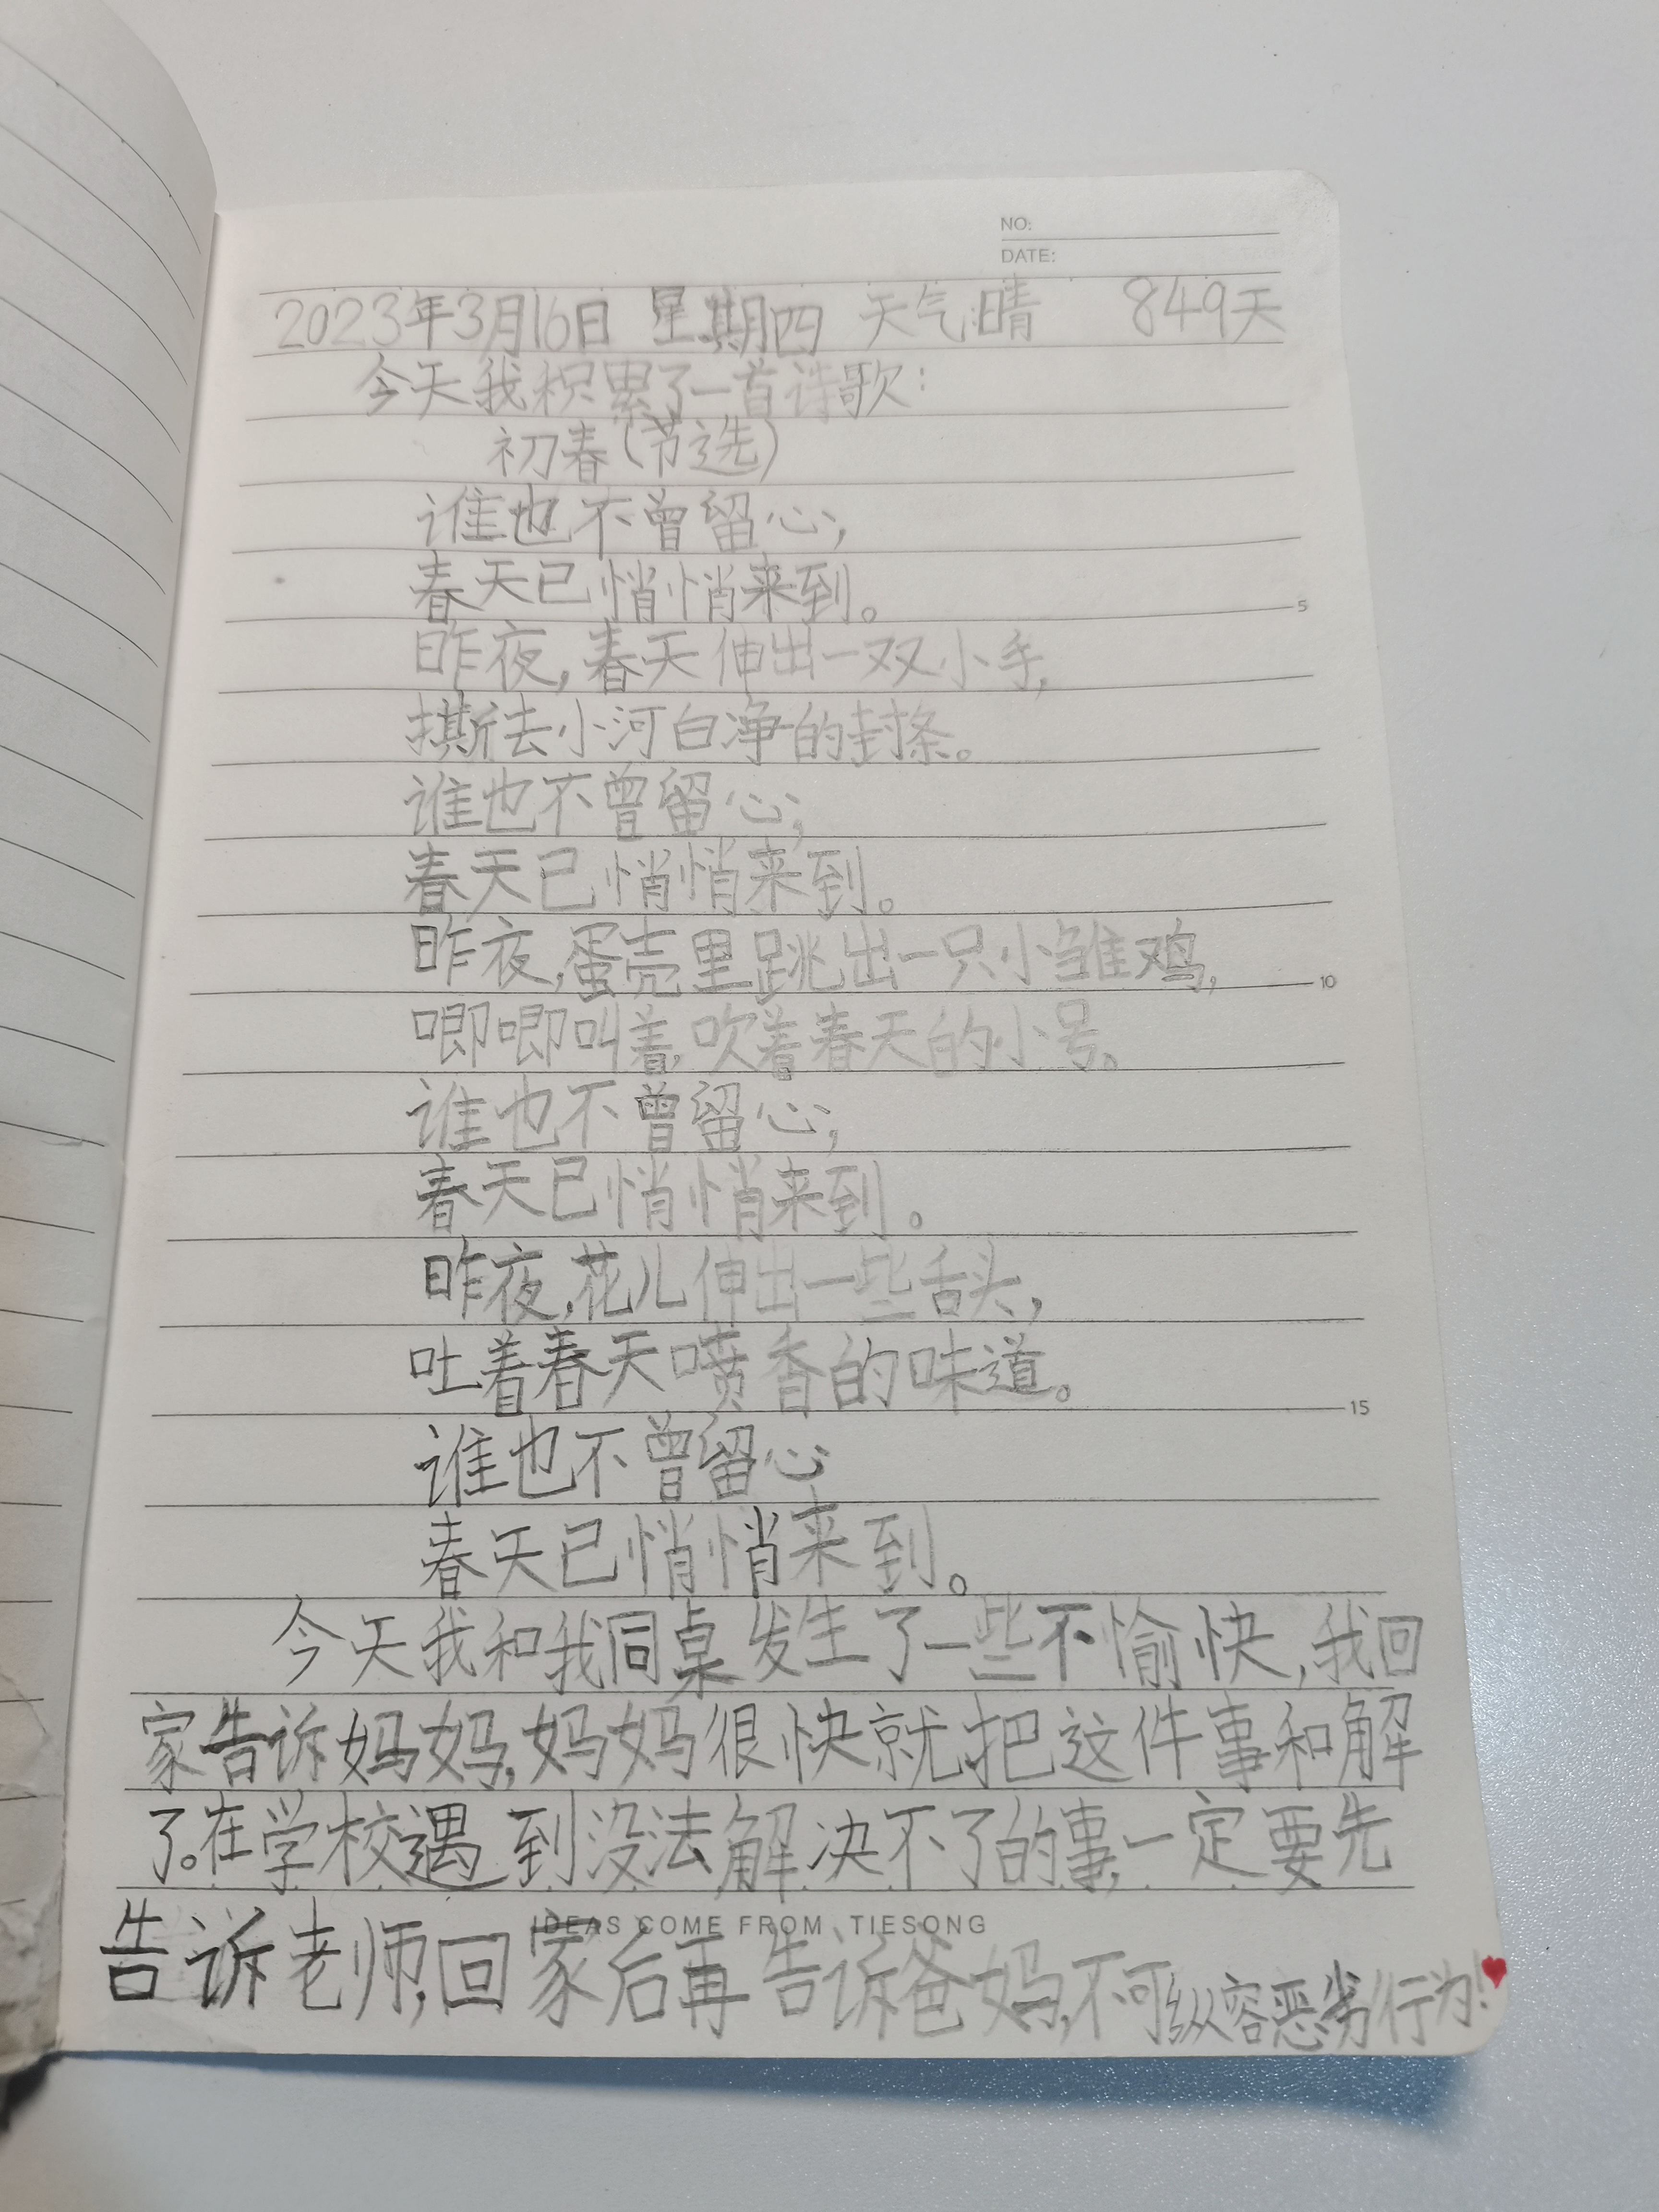 NO:
DATE:
2023年3月16日 星期四 天气:晴 849天
今天我积累了一首诗歌:
初春(节选)
谁也不曾留心,
春天已悄悄来到。
5
昨夜,春天伸出一双小手,
撕去小河白净的封条。
谁也不曾留心,
春天已悄悄来到。
昨夜,蛋壳里跳出一只小雏鸡,
10
唧唧叫着,吹着春天的小号。
谁也不曾留心,
春天已悄悄来到。
昨夜,花儿伸出一些舌头,
吐着春天喷香的味道。
15
谁也不曾留心
春天已悄悄来到。
今天我和我同桌发生了一些不愉快,我回
家告诉妈妈,妈妈很快就把这件事和解
了。在学校遇到没法解决不了的事,一定要先
IDEAS COME FROM TIESONG
告诉老师,回家后再告诉爸妈,不可纵容恶劣行为!